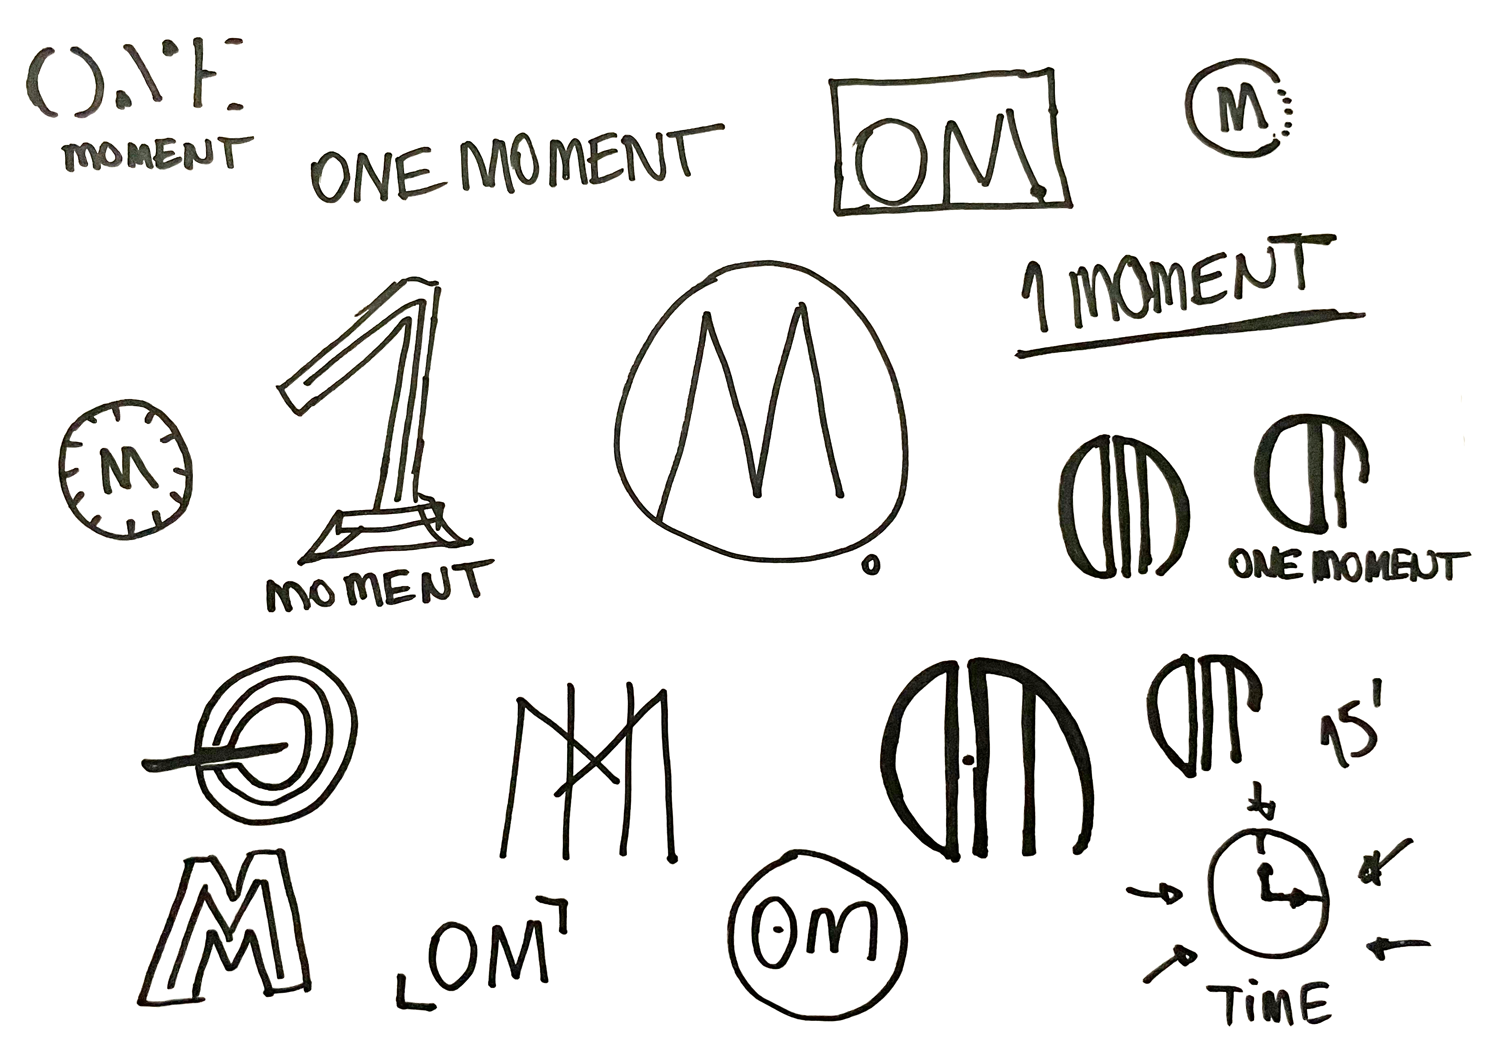 ONE
MOMENT
ONE MOMENT
OM
M
1 MOMENT
M
1
MOMENT
M
OM
OM
ONE MOMENT
M
OM
OM
15'
M
OM
OM
TiME